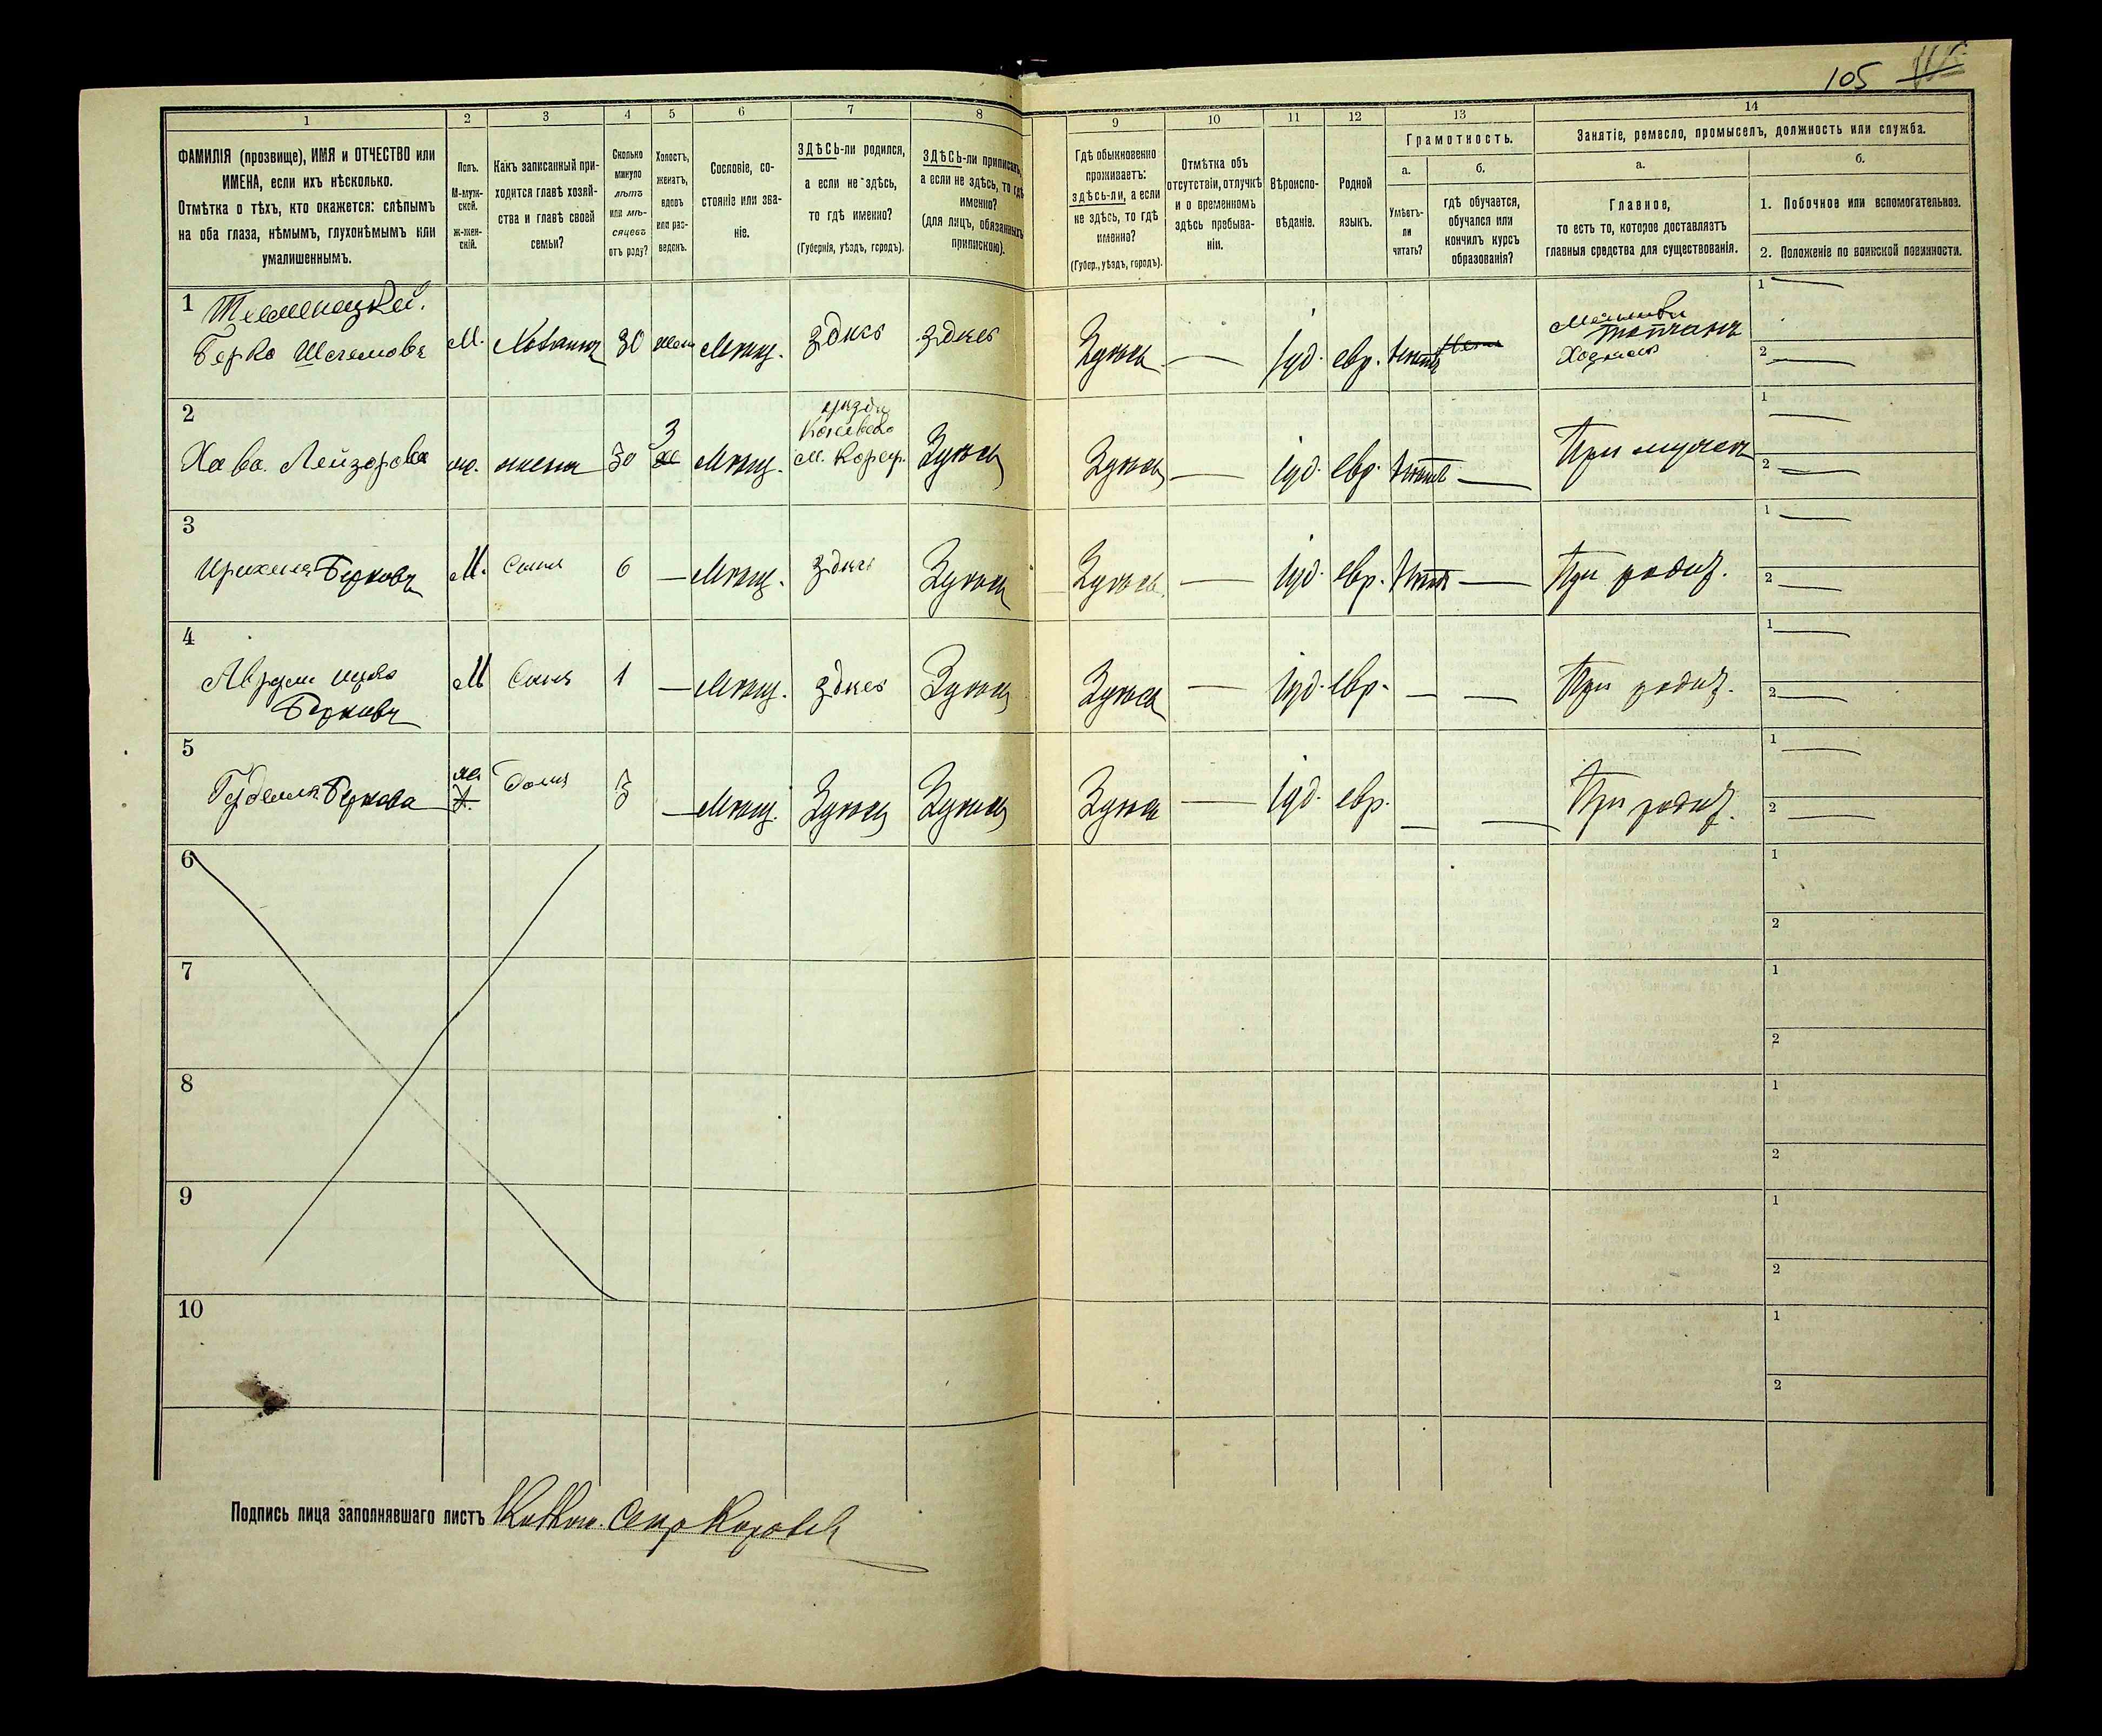 105
1
2
3
4
5
6
7
8
9
10
11
12
13
14
ФАМИЛІЯ (прозвище), ИМЯ и ОТЧЕСТВО или
ИМЕНА, если ихъ нѣсколько.
Отмѣтка о тѣхъ, кто окажется: слѣпымъ
на оба глаза, нѣмымъ, глухонѣмымъ или
умалишеннымъ.
Полъ.
М-муж-
ской.
ж-жен-
скій.
Какъ записанный при-
ходится главѣ хозяй-
ства и главѣ своей
семьи?
Сколько
минуло
лѣтъ
или мѣ-
сяцевъ
отъ роду?
Холостъ,
женатъ,
вдовъ
или раз-
веденъ.
Сословіе, со-
стояніе или зва-
ніе.
ЗДѢСЬ-ли родился,
а если не здѣсь,
то гдѣ именно?
(Губернія, уѣздъ, городъ).
ЗДѢСЬ-ли приписанъ,
а если не здѣсь, то гдѣ
именно?
(для лицъ, обязанныхъ
припискою).
Гдѣ обыкновенно
проживаетъ:
здѣсь-ли, а если
не здѣсь, то гдѣ
именно?
(Губер., уѣздъ, городъ).
Отмѣтка объ
отсутствіи, отлучкѣ
и о временномъ
здѣсь пребыва-
ніи.
Вѣроиспо-
вѣданіе.
Родной
языкъ.
Грамотность.
а.
Умѣетъ-
ли
читать?
б.
гдѣ обучается,
обучался или
кончилъ курсъ
образованія?
Занятіе, ремесло, промыселъ, должность или служба.
а.
Главное,
то есть то, которое доставляетъ
главныя средства для существованія.
б.
1. Побочное или вспомогательное.
2. Положеніе по воинской повинности.
1
Берко М. 30 Мѣщ. здѣсь здѣсь Здѣсь — Іуд. евр. Хозяинъ
1 —
2 —
2
уѣзда
Хава Лейзорова жена 30 Мѣщ. м. Корец. Здѣсь Здѣсь — Іуд. евр. — При мужѣ
1 —
2 —
3
Берковъ М. Сынъ 6 — Мѣщ. здѣсь Здѣсь Здѣсь — Іуд. евр. — При родит.
1 —
2 —
4
М Сынъ 1 — Мѣщ. здѣсь Здѣсь Здѣсь — Іуд. евр. — — При родит.
Берковъ
1 —
2 —
5
Беркова 3 — Мѣщ. Здѣсь Здѣсь Здѣсь — Іуд. евр. — — При родит.
1 —
2 —
6
1
2
7
1
2
8
1
2
9
1
2
10
1
2
Подпись лица заполнявшаго листъ